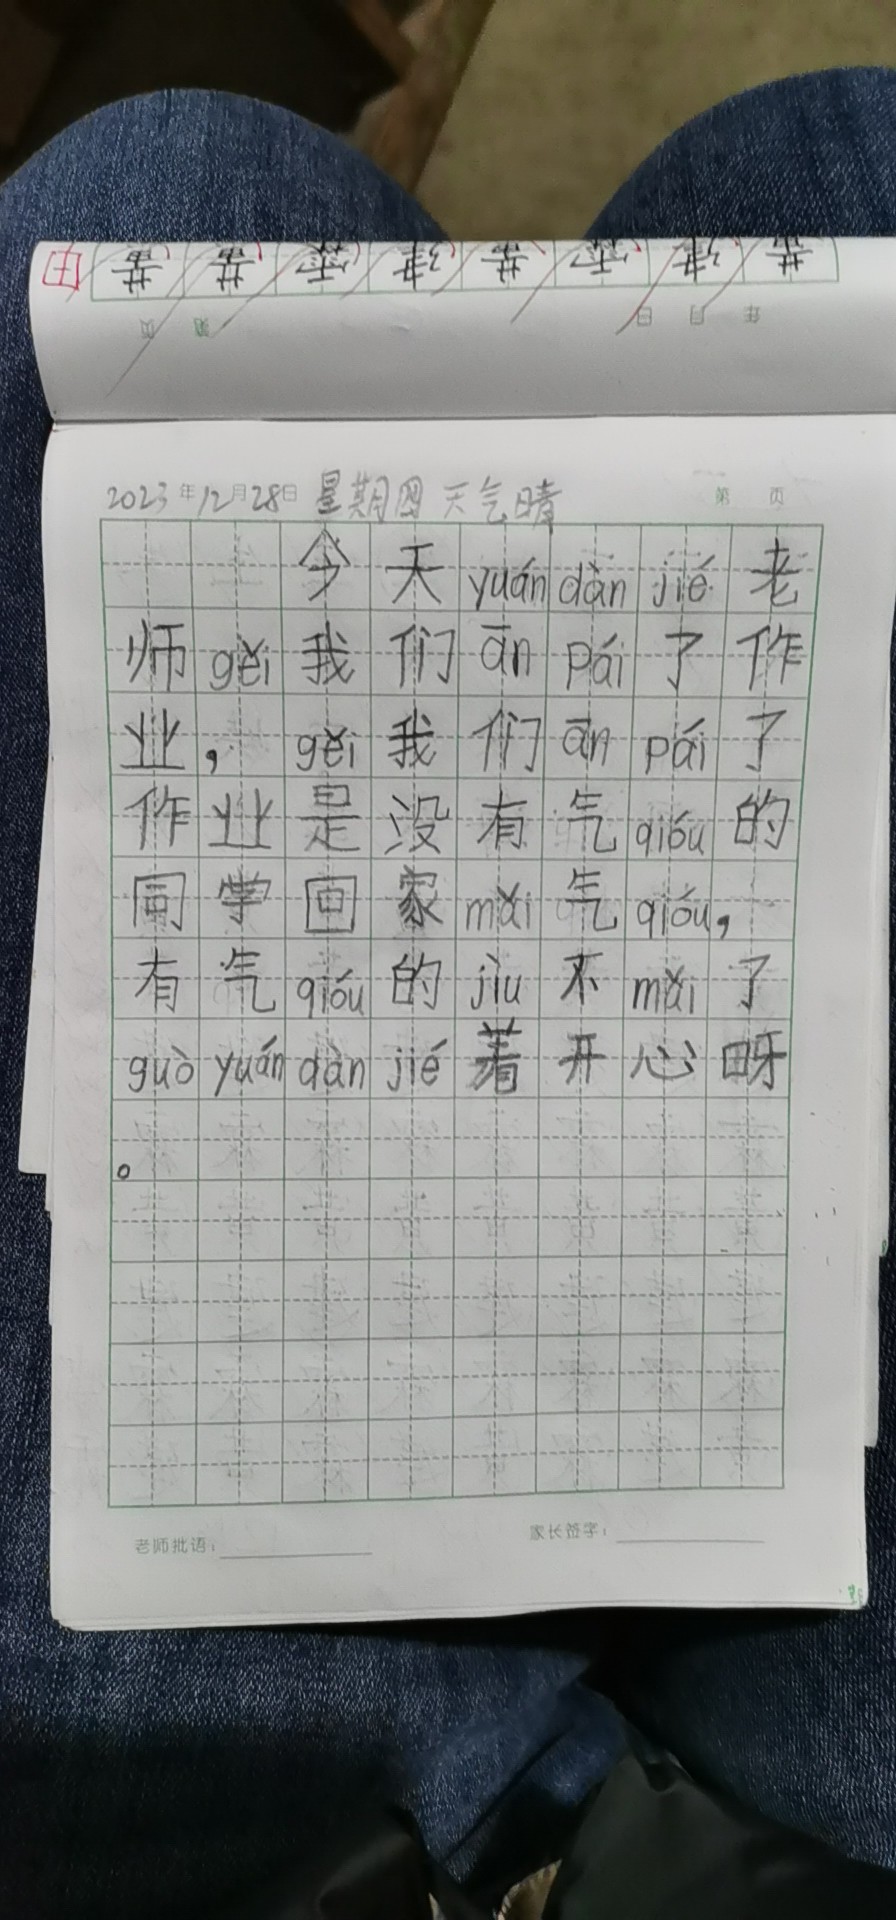 2023年12月28日 星期四 天气晴
第 页
今天yuán dàn jié老
师gěi我们ān pái了作
业，gěi我们ān pái了
作业是没有气qióu的
同学回家mǎi气qióu，
有气qióu的jìu不mǎi了
guò yuán dàn jié着开心呀
。
老师批语：
家长签字：